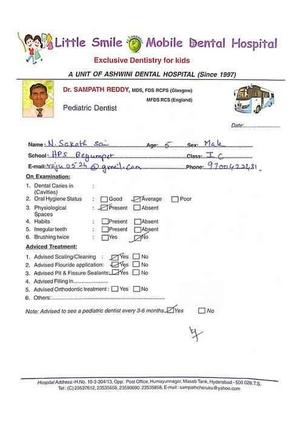 Little Smile Mobile Dental Hospital
Exclusive Dentistry for kids
A UNIT OF ASHWINI DENTAL HOSPITAL (Since 1997)
Dr. SAMPATH REDDY, MDS, FDS RCPS (Glasgow)
MFDS RCS (England)
Pediatric Dentist
Date:
Name: N. Sakath Sai Age: 5 Sex: Male
School: HPS Begumpet Class: I C
E-mail: raju0524@gmail.com Phone:
On Examination:
1. Dental Caries in :
(Cavities)
2. Oral Hygiene Status : Good Average Poor
3. Physiological : Present Absent
Spaces
4. Habits : Present Absent
5. Irregular teeth : Present Absent
6. Brushing twice : Yes No
Adviced Treatment:
1. Advised Scaling/Cleaning : Yes No
2. Advised Flouride application: Yes No
3. Advised Pit & Fissure Sealants: Yes No
4. Advised Filling in
5. Advised Orthodontic Treatment : Yes No
6. Others:
Note: Advised to see a pediatric dentist every 3-6 months Yes No
Hospital Address:-H.No. 10-3-304/13, Opp. Post Office, Humayunnagar, Masab Tank, Hyderabad - 500 028.T.S.
Tel: (C) 23537612, 23535658, 23590690, 23535858. E-mail: sampathcherukur@yahoo.co.in